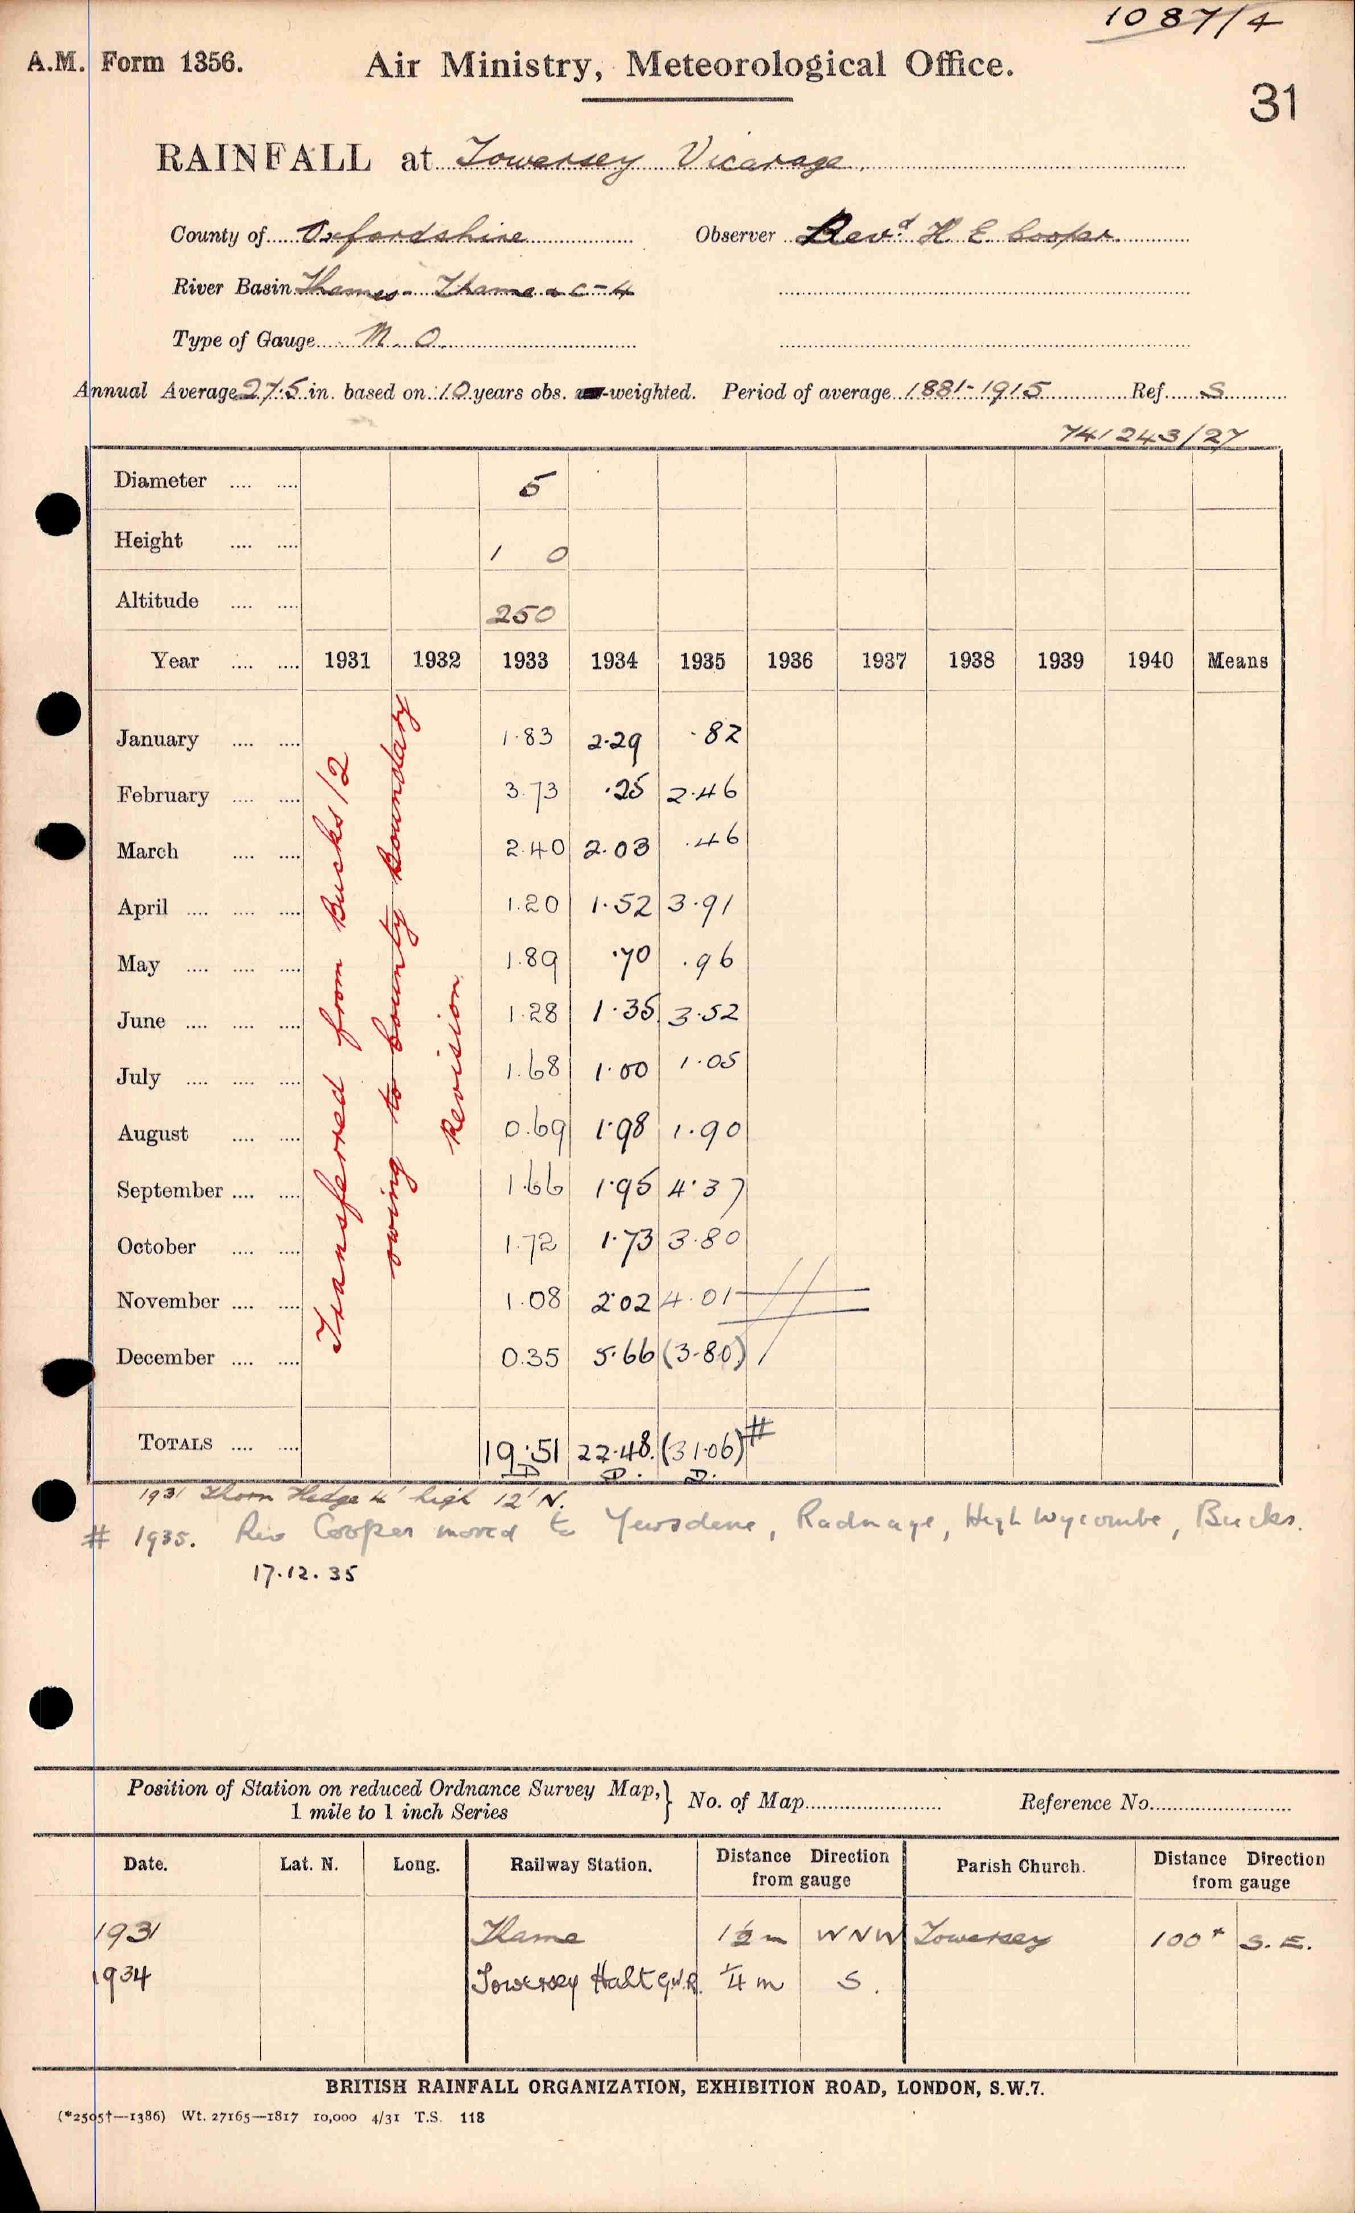 1087/4
A.M. Form 1356. Air Ministry, Meteorological Office.
31
RAINFALL at Towersey Vicarage.
County of Oxfordshire Observer Revd. H. E. Cooper.
River Basin Thames - Thame &c - 4
Type of Gauge M. O.
Annual Average 27.5 in. based on 10 years obs. -weighted. Period of average 1881-1915 Ref. S
741243/27
Diameter .... .... 5
Height .... .... 1 0
Altitude .... .... 250
Year .... .... 1931 1932 1933 1934 1935 1936 1937 1938 1939 1940 Means
Transferred from Bucks/2
owing to County Boundary
Revision
January .... .... 1.83 2.29 .82
February .... .... 3.73 .25 2.46
March .... .... 2.40 2.03 .46
April .... .... .... 1.20 1.52 3.91
May .... .... .... 1.89 .70 .96
June .... .... .... 1.28 1.35 3.52
July .... .... .... 1.68 1.00 1.05
August .... .... 0.69 1.98 1.90
September .... .... 1.66 1.95 4.37
October .... .... 1.72 1.73 3.80
November .... .... 1.08 2.02 4.01
December .... .... 0.35 5.66 (3.80)
TOTALS .... .... 19.51 22.48. (31.06) #
D D. D.
1931 Thorn Hedge 4' high 12' N.
# 1935. Rev Cooper moved to Yewsdene, Radnage, High Wycombe, Bucks.
17.12.35
Position of Station on reduced Ordnance Survey Map,
1 mile to 1 inch Series } No. of Map Reference No.
Date. Lat. N. Long. Railway Station. Distance Direction from gauge Parish Church. Distance Direction from gauge
1931 Thame 1½ m WNW Towersey 100x S.E.
1934 Towersey Halt G.W.R. ¼ m S.
BRITISH RAINFALL ORGANIZATION, EXHIBITION ROAD, LONDON, S.W.7.
(*2505†—1386) Wt. 27165—1817 10,000 4/31 T.S. 118